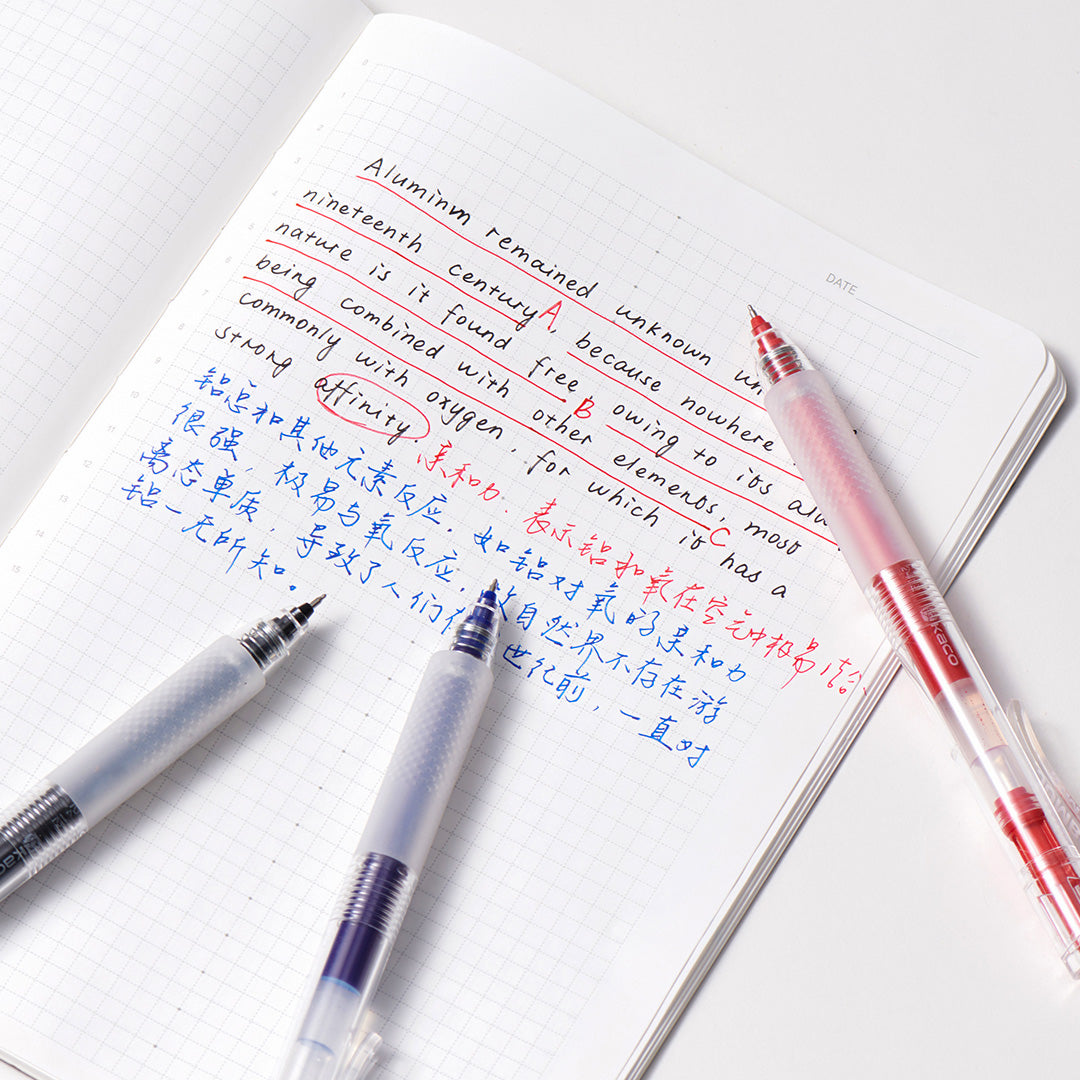 DATE
Aluminum remained unknown
nineteenth century A, because nowhere
nature is it found free B, owing to its
being combined with other elements, C most
commonly with oxygen, for which it has a
strong affinity.
亲和力. 表示铝和氧在空气中极易
铝总和其他元素反应. 如铝对氧的亲和力
很强, 极易与氧反应, 故自然界不存在游
离态单质, 导致了人们 世纪前, 一直对
铝一无所知。
kaco
kaco